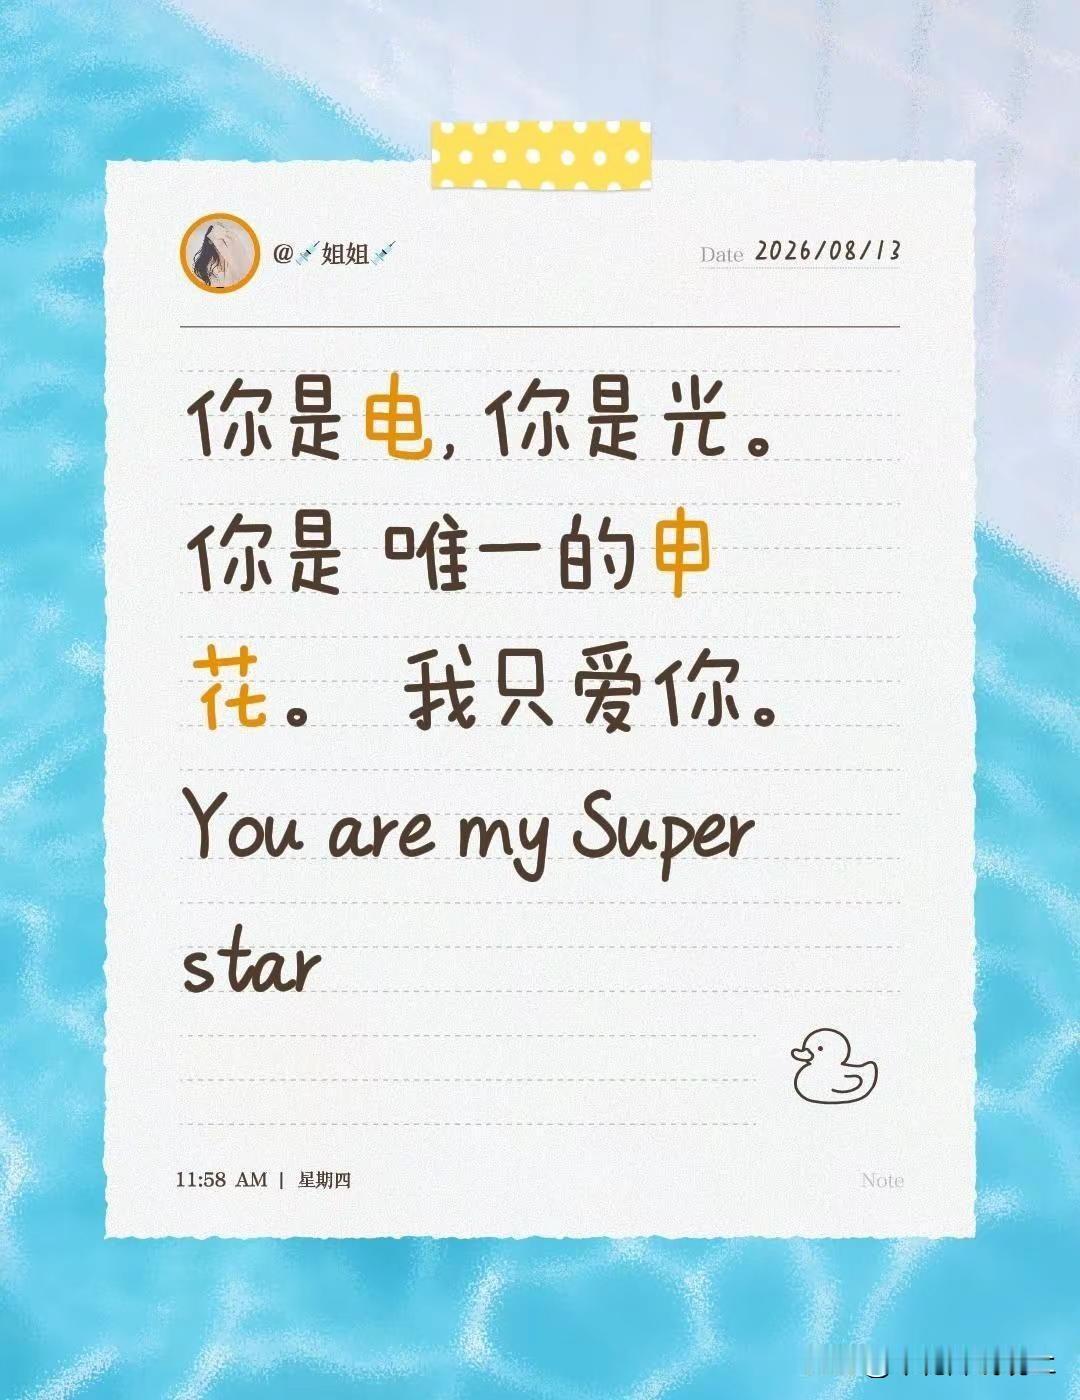 @💉姐姐💉
Date 2026/08/13
你是电，你是光。
你是 唯一的申
花。 我只爱你。
You are my Super
star
11:58 AM | 星期四
Note